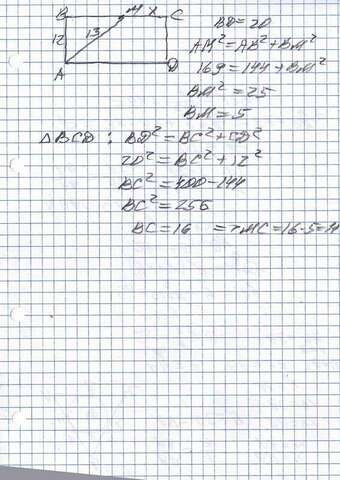 B M X C
BD=20
12 13
AM²=AB²+BM²
A D
169=144+BM²
BM²=25
BM=5
△BCD: BD²=BC²+CD²
20²=BC²+12²
BC²=400-144
BC²=256
BC=16 => MC=16-5=11